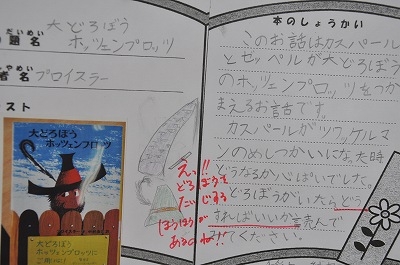 だいめい
題名
大どろぼう
ホッツェンプロッツ
者名
プロイスラー
スト
大どろぼう
ホッツェンプロッツ
大どろぼう
ホッツェンプロッツに
えっ!!
どろぼうを
たいじする
ほうほうが
あるのね!!
本のしょうかい
このお話はカスパール
とゼッペルが大どろぼう
のホッツェンプロッツをつか
まえるお話です。
カスパールがツワッケルマ
ンのめしつかいになった時
どうなるか心ぱいでした
どろぼうがいたらどう
すればいいか読んで
みてください。